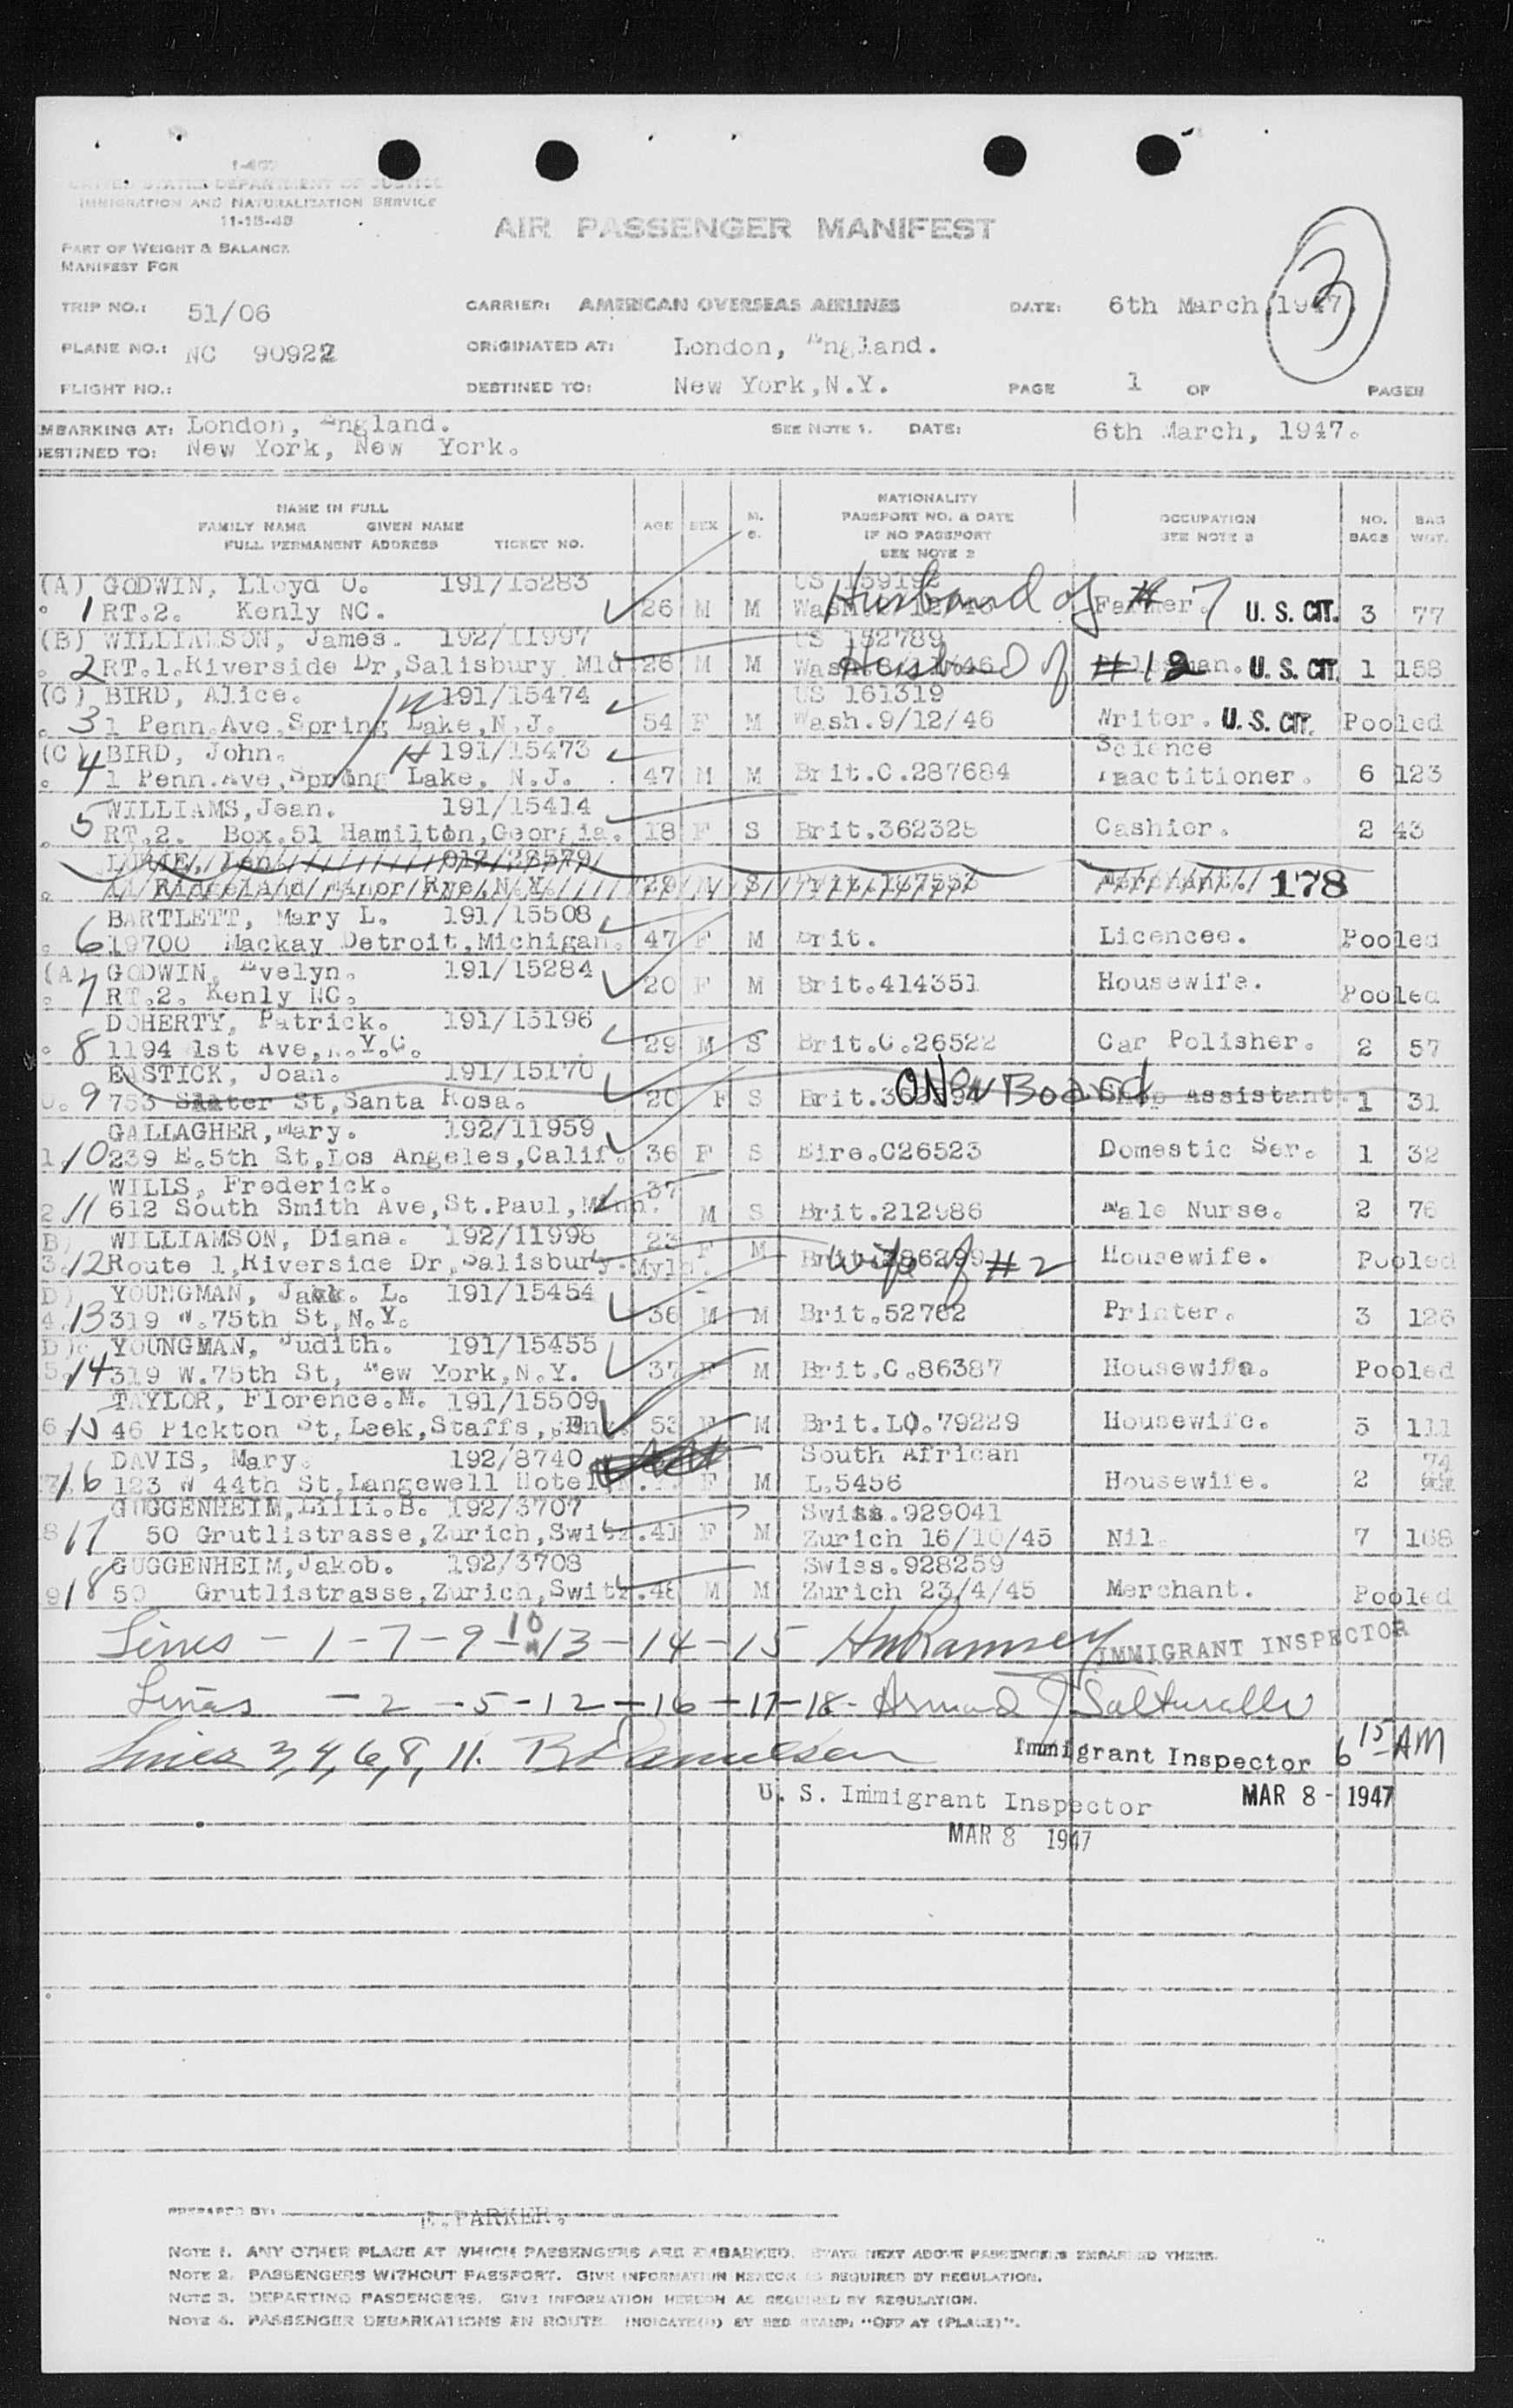 I-466
UNITED STATES DEPARTMENT OF JUSTICE
IMMIGRATION AND NATURALIZATION SERVICE
11-15-45
PART OF WEIGHT & BALANCE
MANIFEST FOR
AIR PASSENGER MANIFEST
3
TRIP NO.: 51/06 CARRIER: AMERICAN OVERSEAS AIRLINES DATE: 6th March 1947.
PLANE NO.: NC 90922 ORIGINATED AT: London, England.
FLIGHT NO.: DESTINED TO: New York,N.Y. PAGE 1 OF PAGES
EMBARKING AT: London, England. SEE NOTE 1. DATE: 6th March, 1947.
DESTINED TO: New York, New York.
NAME IN FULL
FAMILY NAME GIVEN NAME
FULL PERMANENT ADDRESS TICKET NO.
AGE SEX M. S.
NATIONALITY
PASSPORT NO. & DATE
IF NO PASSPORT
SEE NOTE 2
OCCUPATION
SEE NOTE 3
NO. BAGS
BAG WGT.
(A) GODWIN, Lloyd O. 191/15283 US 159192
1 RT.2. Kenly NC. 26 M M Wash. Husband of #7 Farmer. U. S. CIT. 3 77
(B) WILLIAMSON, James. 192/11997 US 152789
2 RT.1.Riverside Dr,Salisbury Mld 26 M M Wash. Husband of #12 U. S. CIT. 1 158
(C) BIRD, Alice. W 191/15474 US 161319
3 1 Penn.Ave,Spring Lake,N.J. 54 F M Wash.9/12/46 Writer. U. S. CIT. Pooled
(C) BIRD, John. H 191/15473 Science
4 1 Penn.Ave,Spring Lake, N.J. 47 M M Brit.C.287684 Practitioner. 6 123
WILLIAMS,Jean. 191/15414
5 RT.2. Box.51 Hamilton,Georgia. 18 F S Brit.362325 Cashier. 2 43
012/28579
Ridgeland Manor Rye,N.Y. 29 M S Merchant. 178
BARTLETT, Mary L. 191/15508
6 19700 Mackay Detroit,Michigan. 47 F M Brit. Licencee. Pooled
(A) GODWIN, Evelyn. 191/15284
7 RT.2. Kenly NC. 20 F M Brit.414351 Housewife. Pooled
DOHERTY, Patrick. 191/15196
8 1194 1st Ave,N.Y.C. 29 M S Brit.C.26522 Car Polisher. 2 57
EASTICK, Joan. 191/15170
0. 9 753 Slater St,Santa Rosa. 20 F S Brit. ON Board Assistant. 1 31
GALLAGHER,Mary. 192/11959
1 10 239 E.5th St,Los Angeles,Calif. 36 F S Eire.C26523 Domestic Ser. 1 32
WILLS, Frederick. 37
2 11 612 South Smith Ave,St.Paul,Minn. M S Brit.212986 Male Nurse. 2 76
B) WILLIAMSON, Diana. 192/11998 23
3. 12 Route 1,Riverside Dr,Salisbury.Myld. F M Wife of #2 Housewife. Pooled
D) YOUNGMAN, Jack. L. 191/15454
4. 13 319 W.75th St,N.Y. 36 M M Brit.52762 Printer. 3 126
D) YOUNGMAN, Judith. 191/15455
5. 14 319 W.75th St, New York,N.Y. 37 F M Brit.C.86387 Housewife. Pooled
TAYLOR, Florence.M. 191/15509
6. 15 46 Pickton St,Leek,Staffs,Eng. 53 F M Brit.LO.79229 Housewife. 5 111
DAVIS, Mary. 192/8740 South African 74
7. 16 123 W 44th St,Langewell Hotel F M L.5456 Housewife. 2
GUGGENHEIM,Lilli.B. 192/3707 Swiss.929041
8 17 50 Grutlistrasse,Zurich,Switz. 41 F M Zurich 16/10/45 Nil. 7 168
GUGGENHEIM,Jakob. 192/3708 Swiss.928259
9 18 50 Grutlistrasse,Zurich,Switz. 48 M M Zurich 23/4/45 Merchant. Pooled
Lines - 1 - 7 - 9 - 10 - 13 - 14 - 15 HmRamsey IMMIGRANT INSPECTOR
Lines - 2 - 5 - 12 - 16 - 17 - 18 -
Lines 3, 4, 6, 8, 11. Immigrant Inspector 6 15 AM
U. S. Immigrant Inspector MAR 8 - 1947
MAR 8 1947
PREPARED BY: PARKER.
NOTE 1. ANY OTHER PLACE AT WHICH PASSENGERS ARE EMBARKED. STATE NEXT ABOVE PASSENGERS EMBARKED THERE.
NOTE 2. PASSENGERS WITHOUT PASSPORT. GIVE INFORMATION HEREON AS REQUIRED BY REGULATION.
NOTE 3. DEPARTING PASSENGERS. GIVE INFORMATION HEREON AS REQUIRED BY REGULATION.
NOTE 4. PASSENGER DEBARKATIONS EN ROUTE. INDICATE(D) BY RED STAMP: "OFF AT (PLACE)".